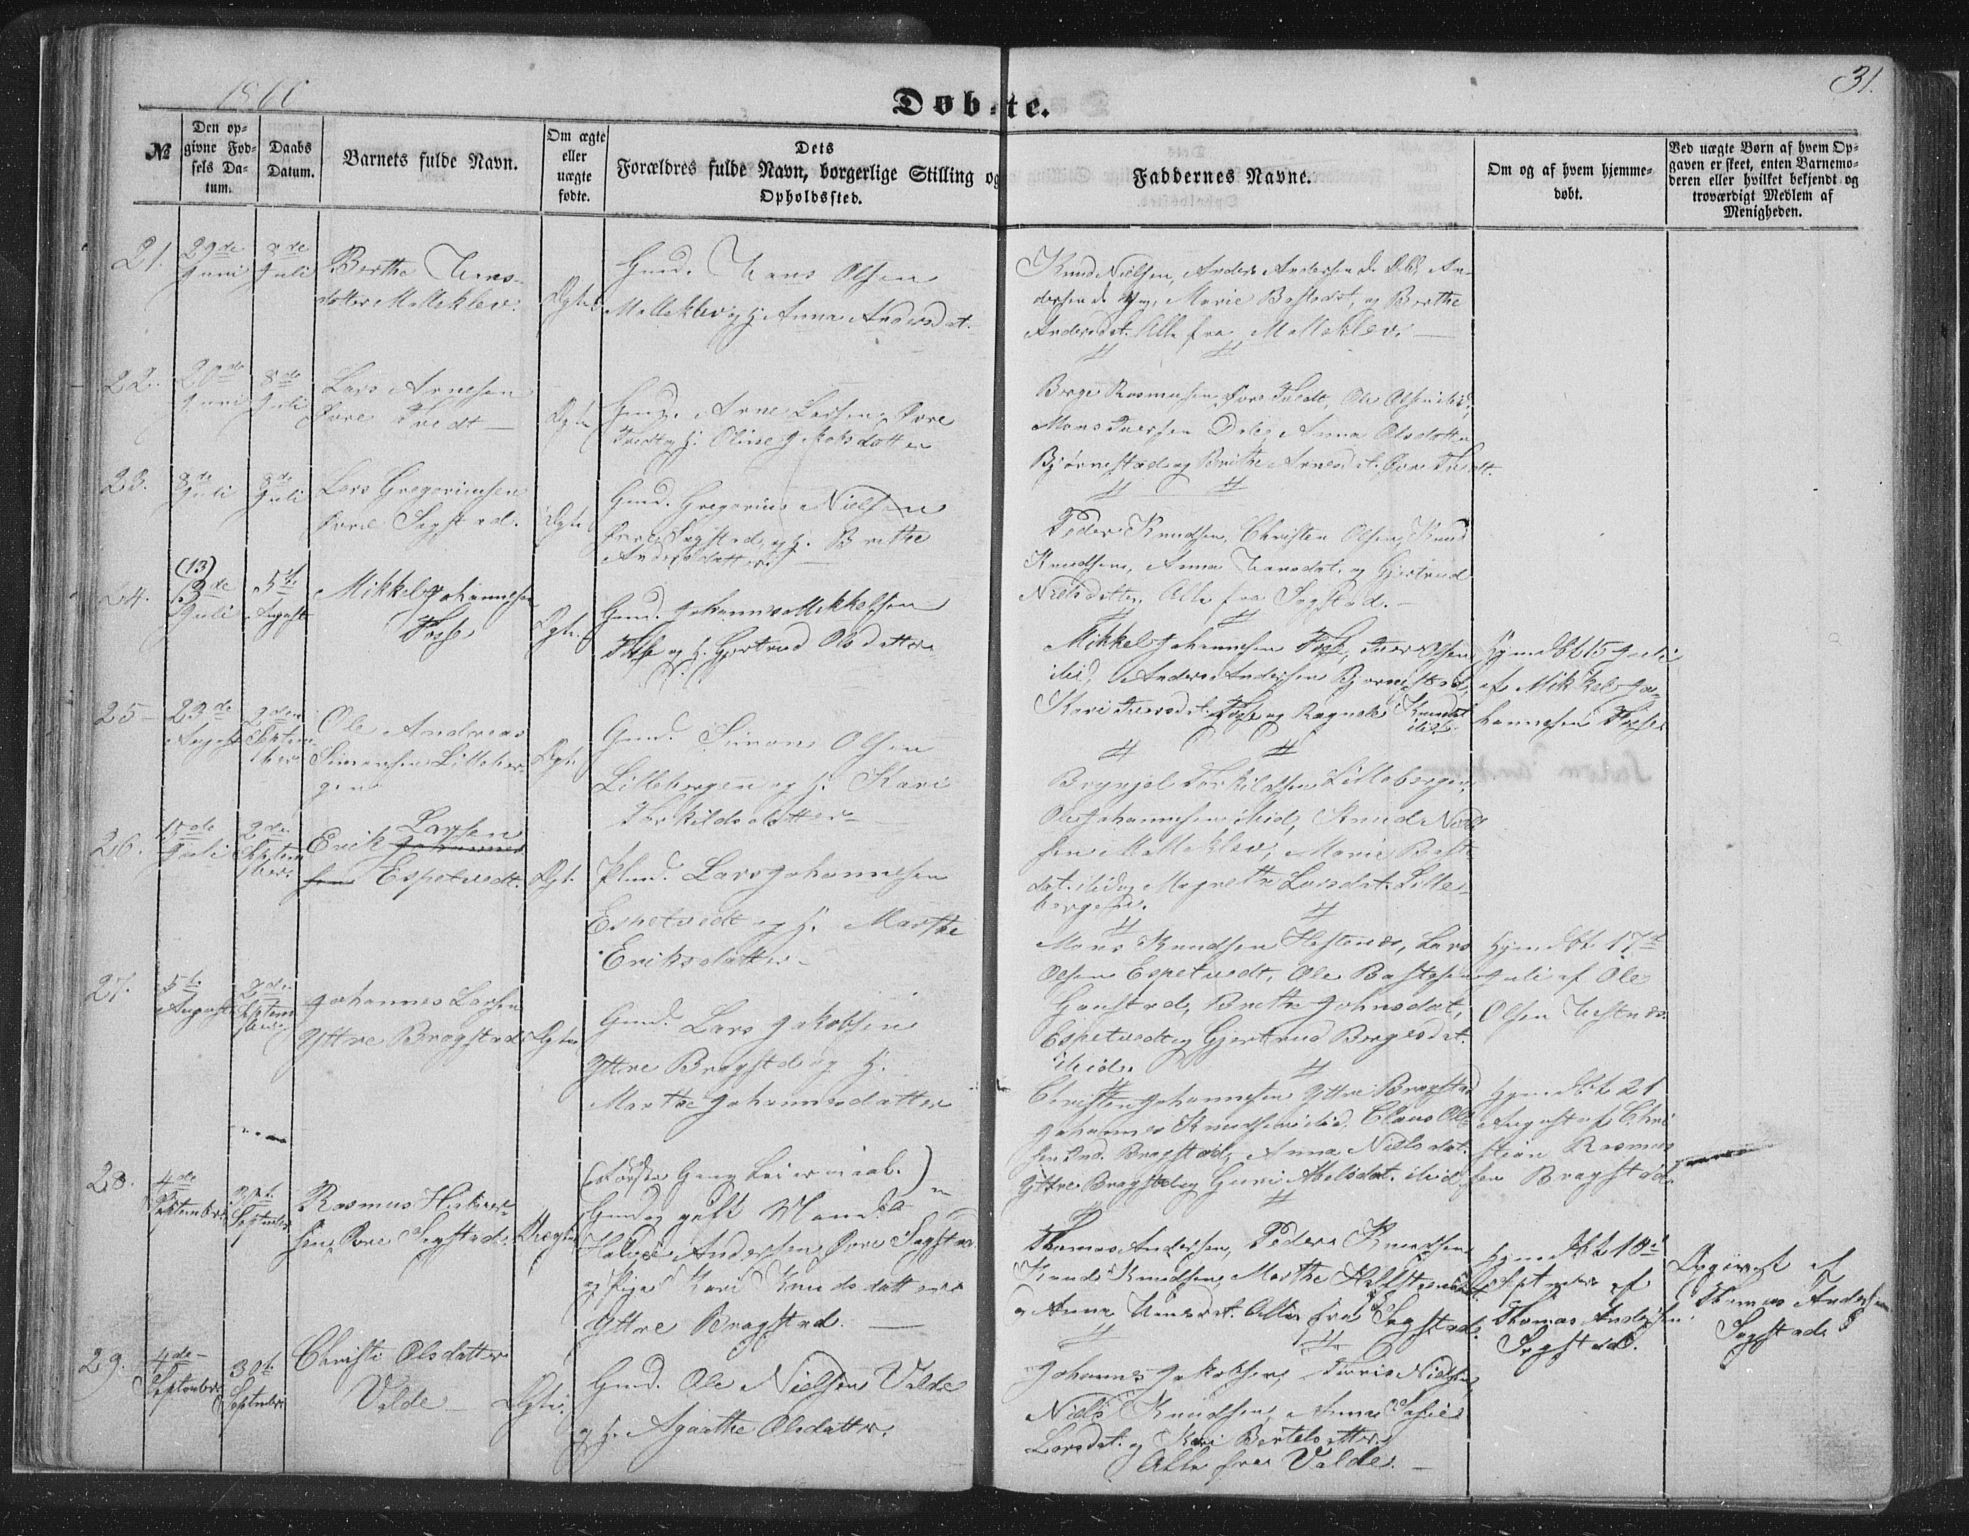 1860
Døbte.
31.
№
Den op-
givne Fød-
sels Da-
tum.
Daabs
Datum.
Barnets fulde Navn.
Om ægte
eller
uægte
fødte.
Dets
Forældres fulde Navn, borgerlige Stilling og
Opholdssted.
Faddernes Navne.
Om og af hvem hjemme-
døbt.
Ved uægte Børn af hvem Op-
gaven er skeet, enten Barnemo-
deren eller hvilket bekjendt og
troværdigt Medlem af
Menigheden.
21.
29de
Juni
8de
Juli
Berthe Hans-
datter Molleklev.
Ægte
Gmd. Hans Olsen
Molleklev og H. Anna Andersdat.
Knud Nielsen, Anders Andersen
Marie Bastsdat. og Berthe
Andersdat. Alle fra Molleklev.
22.
20de
Juni
8de
Juli
Lars Arnesen
Øvre Tvedt
Ægte
Gmd. Arne Larsen Øvre
Tvedt og H. Oline Jakobsdatter
Børge Rasmussen Øvre Tvedt, Ole Olsen ibid,
Mons Iversen Anna Olsdatter
Bjørnestad og Brithe Arnesdt. Øvre Tvedt.
23.
8de
Juli
8de
Juli
Lars Gregoriussen
Øvre Sogstad.
Ægte
Gmd. Gregorius Nielsen
Øvre Sogstad, og H. Brithe
Andersdatter
Peder Knudsen, Christen Olsen, Knud
Knudsen, Anna Hansdat. og Gjertrud
Nielsdatter, Alle fra Sogstad.
24.
(13)
Juli
5te
August
Mikkel Johannesen
Fosse
Ægte.
Gmd. Johannes Mikkelsen
Fosse og H. Gjertrud Olsdatter
Mikkel Johannesen Fosse, Iver Olsen
ibid, Anders Andersen Bjørnestad,
Kari Iversdat. Fosse og Ragnilde Knudsdt
ibid.
Hjmdbt 15 Juli
af Mikkel Jo-
hannesen Fosse
25
23de
August
2den
Septem-
ber
Ole Andreas
Simonsen Lilleber-
gen
Ægte
Gmd. Simon Olsen
Lillebergen og H. Kari
Torkildsdatter
Brynjel Torkildsen Lillebergen,
Ole Johannesen ibid, Knud Niel-
sen Molleklev, Marie Bast-
dat. ibid og Magrethe Larsdat. Lille-
bergen.
26.
15de
Juli
2den
Septem-
ber.
Larsen
Erik Johannes
sen Espetvedt.
Ægte.
Plmd. Lars Johannesen
Espetvedt og H. Marthe
Eriksdatter
Mons Knudsen Hestnes, Lars
Olsen Espetvedt, Ole Bastesen
Gaustad, Brethe Johnsdat,
Espetvedt og Gjertrud Børgesdat.
ibid.
Hjmdbt 17de
Juli af Ole
Olsen Hestnes.
27.
5te
August
2den
Septem-
ber
Johannes Larsen
Yttre Bragstad
Ægte
Gmd. Lars Jakobsen
Yttre Bragstad og H.
Marthe Johannesdatter
Christen Johannesen Yttre Bragstad
Johannes Knudsen ibid, Claus Ol-
sen Ind. Bragstad, Anna Nielsdat.
Yttre Bragstad og Guri Abelsdat. ibid
Hjmdbt 21
August af Chri
stian Rasmus
sen Bragstad
28.
4de
September
30te
September
Rasmus
sen, Øvre Sogstad.
Uægte
(Første Gang Leiermaal.)
Gmd og gift Mand
Andersen Øvre Sogstad
og Pige Kari Knudsdatter
Yttre Bragstad.
Thomas Andersen, Peder Knudsen
Knud Knudsen, Marthe
og Anna Hansdt. Alle fra Sogstad.
Hjmdbt 18de
September af
Thomas Andersen
Sogstad.
Opgivet af
Thomas Andersen
Sogstad
29.
4de
September
30te
September
Christi Olsdatter
Valde
Ægte.
Gmd. Ole Nielsen Valde
og H. Agaathe Olsdatter.
Johannes Jakobsen, Nielsen,
Niels Knudsen, Anna Sofie
Larsdat. og Kari Bertelsdatter
Alle fra Valde.